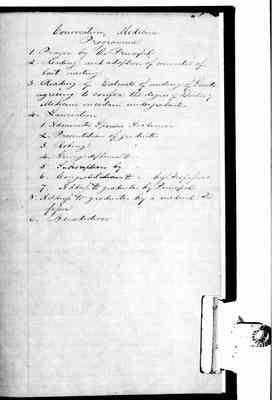 Convocation, Medicine
Programme
1. Prayer by the Principal
2. Reading and adoption of minutes of
last meeting
3. Reading of Extracts of meeting of
agreeing to confer the degree of
Medicine on certain undergraduates
4. Laureation
1. Administer Sponsio Academica
2. Presentation of graduates
3. Robing "
4. Giving diplomas to "
5. Subscription by
6. Congratulations to " by Professors
7. Address to graduates by Principal
8. Address to graduates by a medical Pro
fessor
6. Benediction